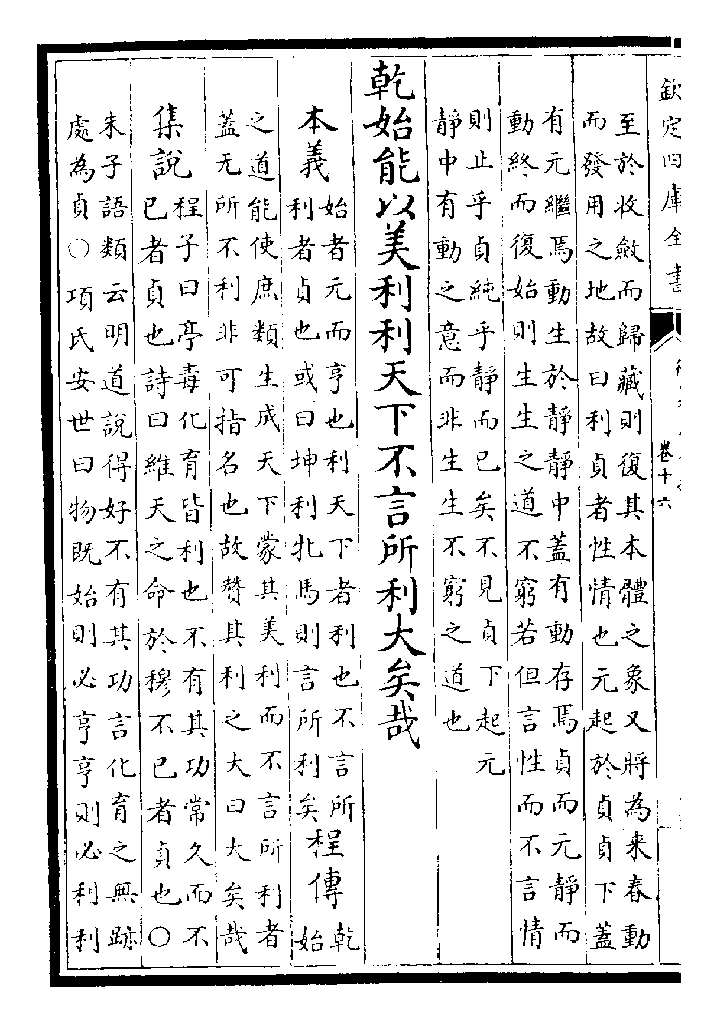 欽定四庫全書
卷十六
至於收斂而歸藏則復其本體之象又將為來春動
而發用之地故曰利貞者性情也元起於貞貞下蓋
有元繼焉動生於靜靜中蓋有動存焉貞而元靜而
動終而復始則生生之道不窮若但言性而不言情
則止乎貞純乎靜而已矣不見貞下起元
靜中有動之意而非生生不窮之道也
乾始能以美利利天下不言所利大矣哉
本義
始者元而亨也利天下者利也不言所
利者貞也或曰坤利牝馬則言所利矣
程傳
乾
始
之道能使庶類生成天下蒙其美利而不言所利者
蓋无所不利非可指名也故贊其利之大曰大矣哉
集說
程子曰亭毒化育皆利也不有其功常久而不
已者貞也詩曰維天之命於穆不已者貞也○
朱子語類云明道說得好不有其功言化育之無跡
處為貞○項氏安世曰物既始則必亨亨則必利利